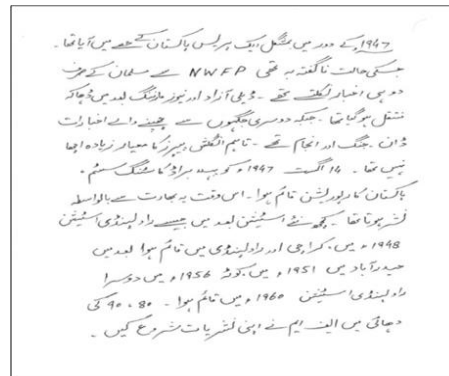 1947ء کے دور میں بمشکل ایک پریس پاکستان کے حصے میں آیا تھا۔
جسکی حالت ناگفتہ بہ تھی NWFP سے مسلمان کے صرف
دو ہی اخبار نکلتے تھے۔ ڈیلی آزاد اور نیوز مارننگ بعد میں ڈھاکہ
منتقل ہو گیا تھا۔ جبکہ دوسری جگہوں سے چھپنے والے اخبارات
ڈان۔ جنگ اور انجام تھے۔ تاہم انگلش پیپرز کا معیار زیادہ اچھا
نہیں تھا۔ 14 اگست 1947ء کو براڈ کاسٹنگ سسٹم۔
پاکستان کارپوریشن قائم ہوا۔ اس وقت یہ بھارت سے بالواسطہ
نشر ہوتا تھا۔ کچھ نئے اسٹیشن بعد میں جیسے راولپنڈی اسٹیشن
1948ء میں، کراچی اور راولپنڈی میں قائم ہوا بعد میں
حیدرآباد میں 1951ء میں، کوئٹہ 1956ء میں دوسرا
راولپنڈی اسٹیشن 1960ء میں قائم ہوا۔ 80، 90 کی
دہائی میں ایف ایم نے اپنی نشریات شروع کیں۔